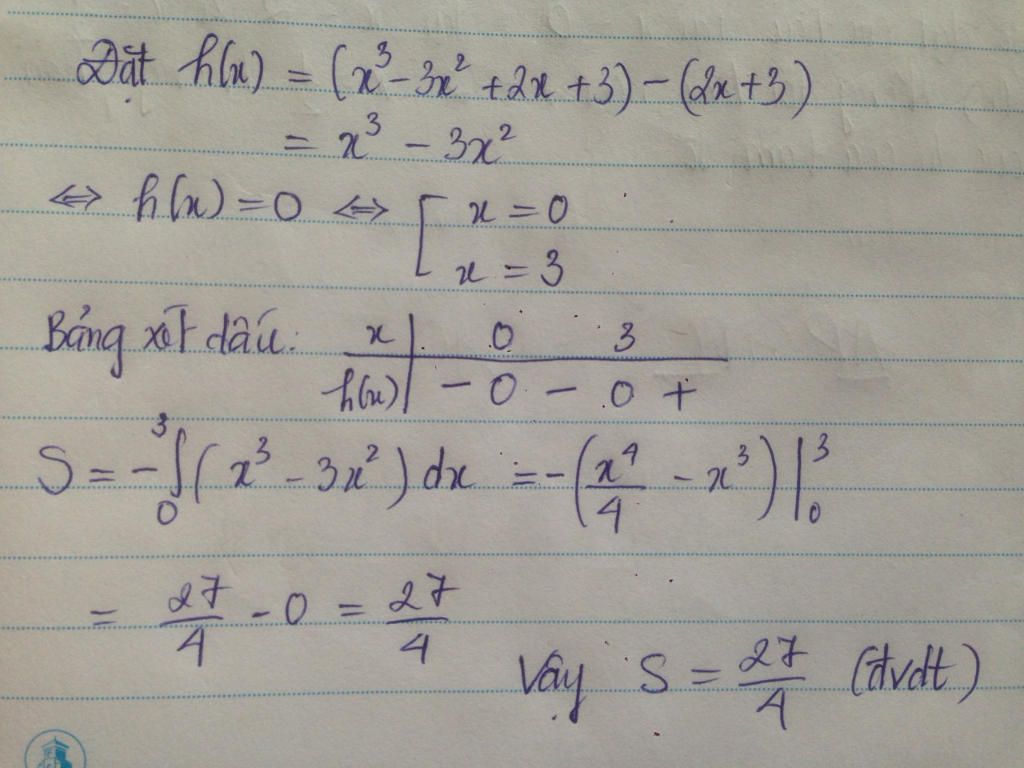 Đặt h(x) = (x³ - 3x² + 2x + 3) - (2x + 3)
= x³ - 3x²
⇔ h(x) = 0 ⇔ [ x = 0
x = 3
Bảng xét dấu: x | 0 3
h(x) | - 0 - 0 +
S = -∫₀³ (x³ - 3x²) dx = -(x⁴/4 - x³) |₀³
= 27/4 - 0 = 27/4
Vậy S = 27/4 (đvdt)